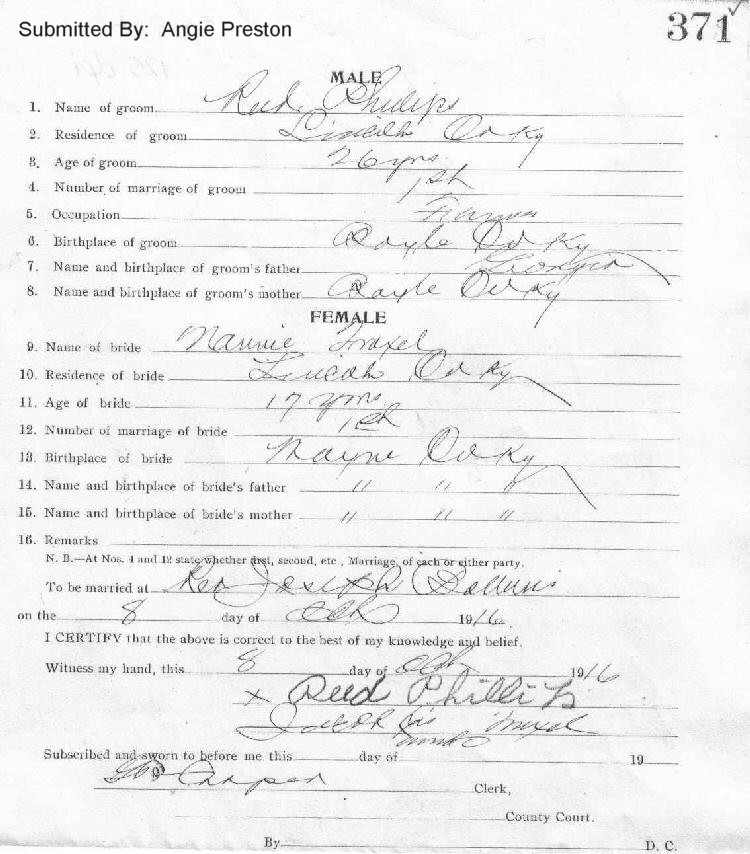 Submitted By: Angie Preston
371
MALE
1. Name of groom Reed Phillips
2. Residence of groom Lincoln Co Ky
3. Age of groom 26 yrs.
4. Number of marriage of groom 1st
5. Occupation Farmer
6. Birthplace of groom Co Ky
7. Name and birthplace of groom's father Georgia
8. Name and birthplace of groom's mother Co Ky
FEMALE
9. Name of bride Nannie Troxel
10. Residence of bride Lincoln Co Ky
11. Age of bride 17 yrs
12. Number of marriage of bride 1st
13. Birthplace of bride Wayne Co Ky
14. Name and birthplace of bride's father " " "
15. Name and birthplace of bride's mother " " "
16. Remarks
N. B.—At Nos. 4 and 12 state whether first, second, etc., Marriage, of each or either party.
To be married at Rev Joseph
on the 8 day of Oct 1916.
I CERTIFY that the above is correct to the best of my knowledge and belief.
Witness my hand, this 8 day of Oct 1916
x Reed Phillips
Jacob his Troxel
mark
Subscribed and sworn to before me this day of 19
Geo Cooper Clerk,
County Court.
By D. C.